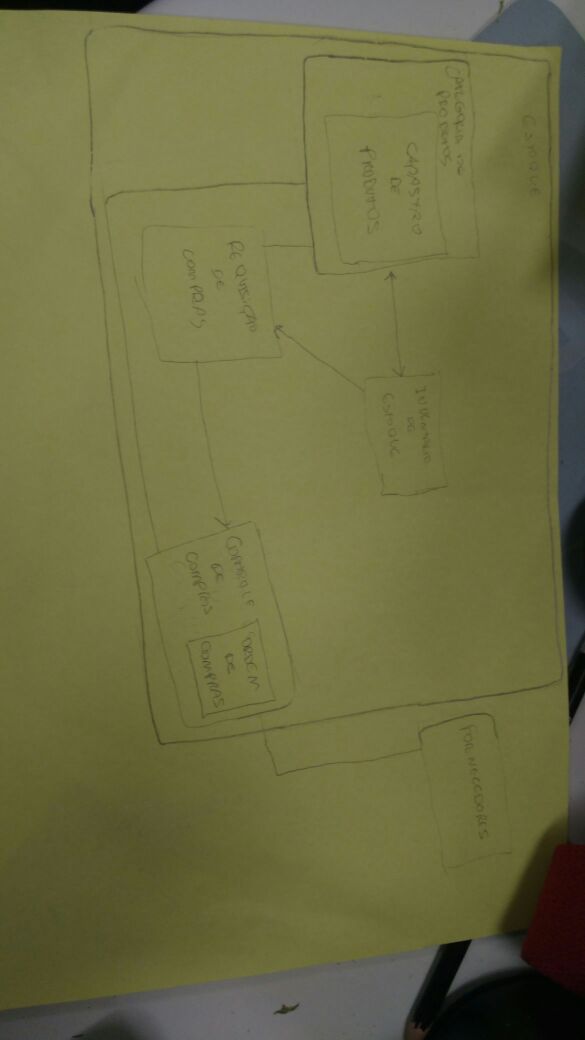 ESTOQUE
CATEGORIA DE
PRODUTOS
CADASTRO
DE
PRODUTOS
INVENTARIO
DE
ESTOQUE
FORNECEDORES
REQUISIÇÃO
DE
COMPRAS
CONTROLE
DE
COMPRAS
ORDEM
DE
COMPRAS